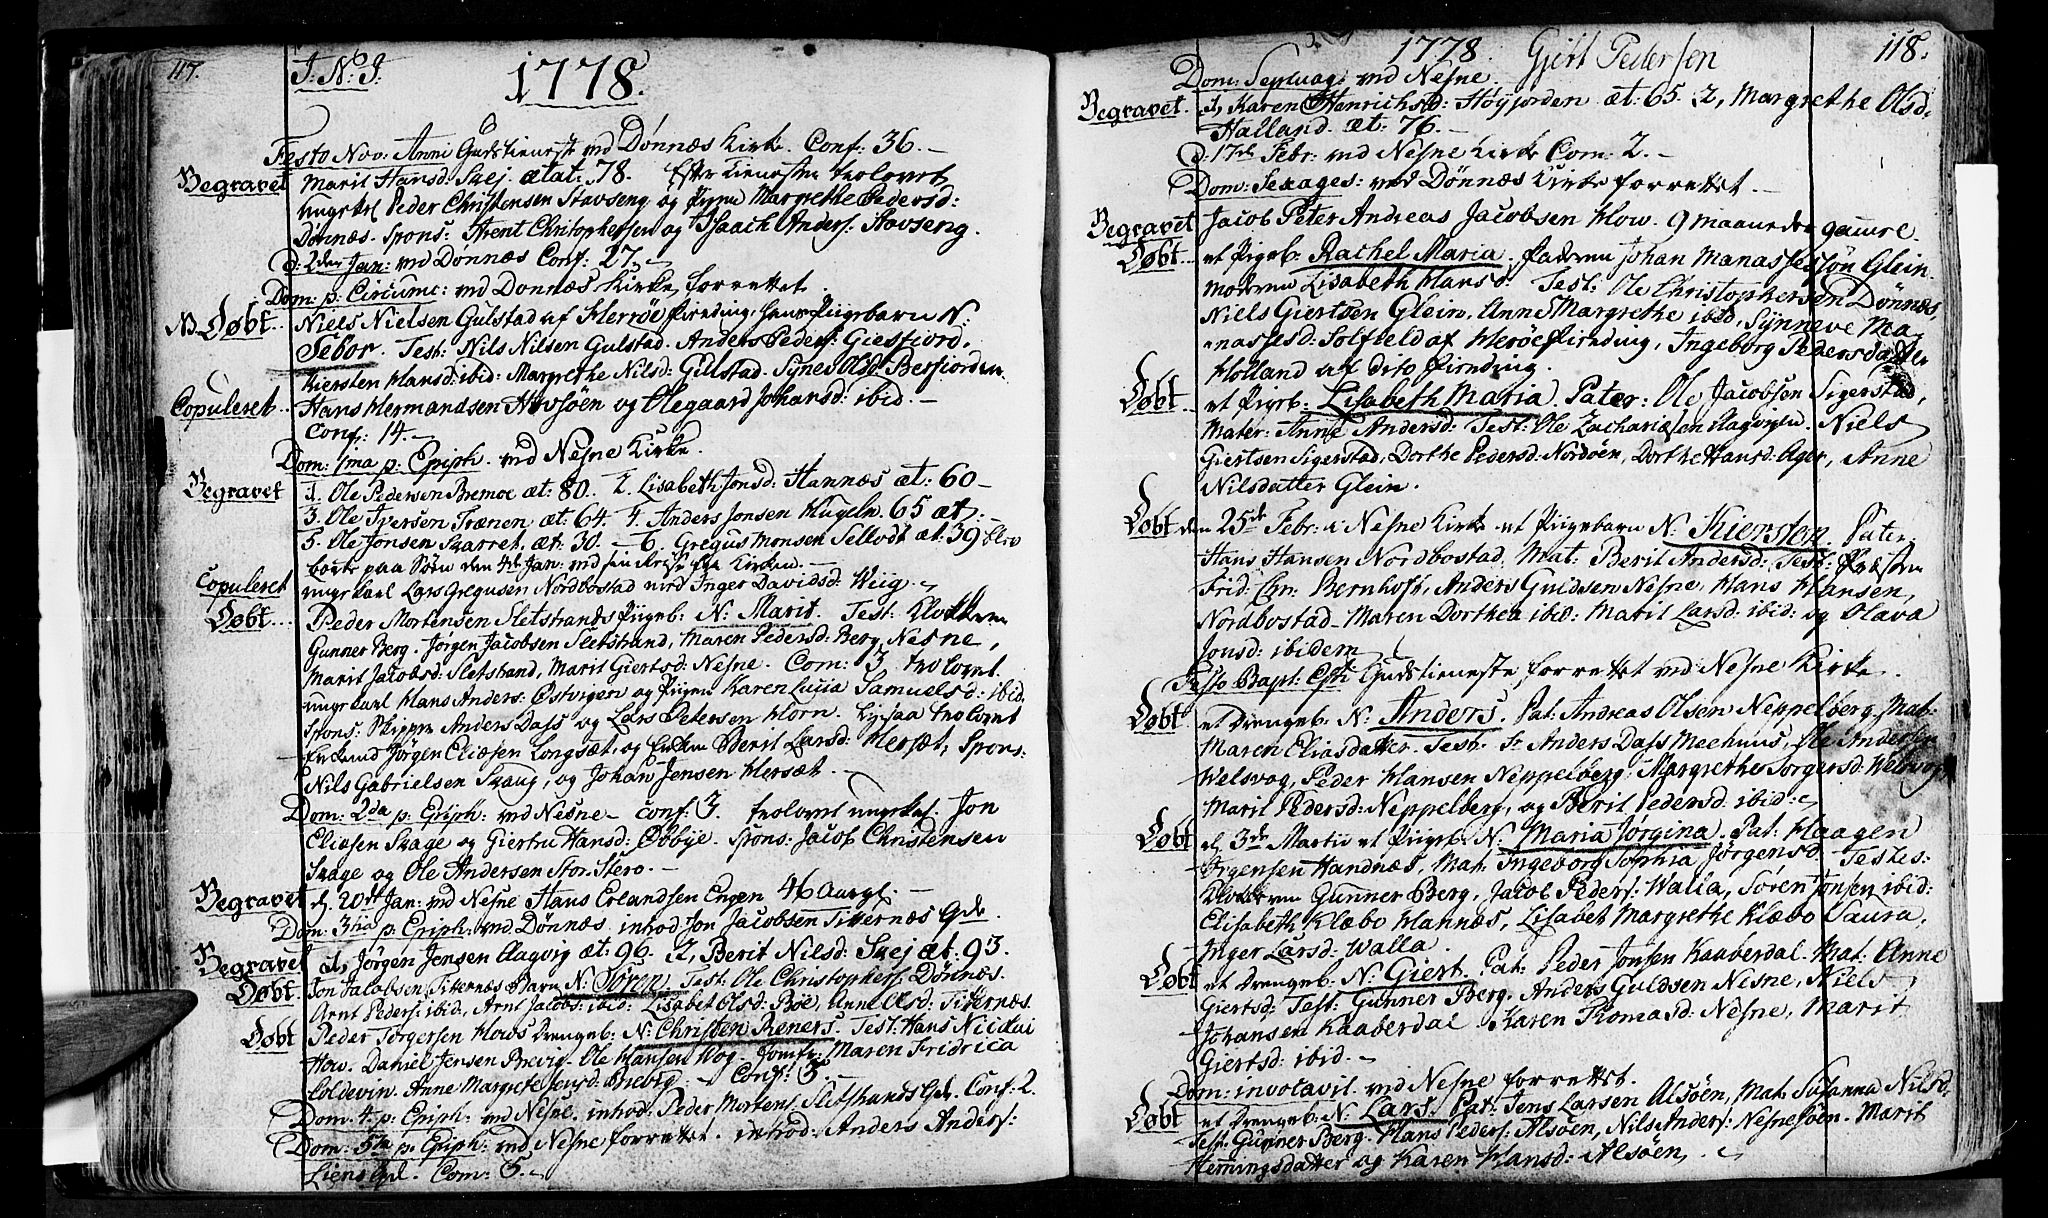 117.
J: N: J.
1778.
Festo Nov: Anni Gudstieneste ved Dønnæs Kirke. Conf: 36.
Begravet Marit Hansd: Svej. ætat: 78. Efter tienesten trolovet
ungkrl Peder Christensen Stavseng og Pigen Margrethe Pedersd:
Dønnæs. Spons: Arent Christophersen og Isaach Anders: Stavseng.
d: 2den Jan: ved Dønnæs Conf: 27.
Dom: p: Circumc: ved Dønnæs Kirke forrettet.
NB Døbt Niels Nielsen Gulstad af Herrøe Pirnding: hans Pigebarn N:
Sebor. Test: Nils Nilsen Gulstad. Anders Peders: Giesfiord.
Kiersten Hansd: ibid: Margrethe Nilsd: Gullstad. Synev Olsd: Besfiorden
Copuleret Hans Hermandsen Havsøen og Olegaard Johansd: ibid.
Conf: 14.
Dom: 1ma p: Epiph. ved Nesne Kirke.
Begravet 1. Ole Pedersen Bremoe æt: 80. 2. Lisabeth Jonsd: Hannæs æt: 60
3. Ole Iversen Trænen æt: 64. 4. Anders Jonsen Hugeln. 65 æt:
5. Ole Jonsen Skarret. æt: 30. 6. Gregus Monsen Sellvdt æt: 39 blev
borte paa Søen den 4de Jan: ved sin Reise fra Kirken.
Copuleret ungkarl Lars Gregusen Nordbostad med Inger Davidsd: Wiig.
Døbt Peder Mortensen Sletstrands Pigeb: N: Marit. Test: Klokkeren
Gunner Berg. Jørgen Jacobsen Sletstrand, Maren Pedersd: Berg, Nesne,
Marit Jacobsd: Sletstrand, Marit Giertsd: Nesne. Com: 3. trolovet
ungekarl Hans Anders: Østvigen og Pigen Karen Lucia Samuelsd: ibid.
Spons: Skipper Anders Dass og Lars Petersen Horn. Ligesaa trolovet
Enkemd Jørgen Eliæsen Longsæt, og Enken Berit Larsd: Hersæt, Spons:
Nils Gabrielsen Skaug, og Johan Jensen Hersæt.
Dom: 2da p: Epiph: ved Nesne. Conf: 3. trolovet ungkrl: Jon
Eliæsen Skage og Giertru Hansd: Øøbye. Spons: Jacob Christensen
Skage og Ole Andersen Stor-Stero.
Begravet d. 20de Jan: ved Nesne Hans Erlandsen Engen 46 Aar gl.
Dom: 3tia p: Epiph: ved Dønnæs. introd: Jon Jacobsen Titternæs Qde.
Begravet 1, Jørgen Jensen Aagvig æt: 96. 2, Berit Nilsd: Svej æt: 93.
Døbt Jon Jacobsen Titternæs Barn N: Søren. Test: Ole Christophers: Dønnæs.
Arnt Peders: ibid, Arnt Jacobs: ibid: Lisabet Olsd: Bøe, Anne Olsd: Titternæs.
Døbt Peder Jørgersen Hows Drengeb: N: Christen Reners. Test: Hans Nicolai
How. Daniel Jensen Brevig. Ole Hansen Wog. Jomfr: Maren Fridrica
Coldevin. Anne Margrete Jensd: Brevig. Conf: 3.
Dom: 4. p: Epiph: ved Nesne. introd: Peder Mortens: Sletstrands Qde. Conf: 2.
Dom: 5ta p: Epiph: ved Nesne forrettet. introd: Anders Anders:
Liens Qde. Com: 5.
1778. Gjert Pedersen 118.
Dom: Septuag: ved Nesne
Begravet 1, Karen Henrichsd: Høyjorden æt: 65. 2, Margrethe Olsd:
Halland. æt: 76.
d: 17de Febr: ved Nesne Kirke Com: 2.
Dom: Sexages: ved Dønnæs Kirke forrettet.
Begravet Jacob Peter Andreas Jacobsen How. 9 maaneder gamle.
Døbt et Pigeb: Rachel Maria. Faderen Johan Manassesøn Glein
Moderen Lisabeth Hansd: Test: Ole Christophersen Dønnæs,
Niels Giertsen Glein, Anne Margrethe ibid, Synneve Ma-
nassesd: Solfield af Herøe Pirnding, Ingeborg Pedersdatter
Holland af dito Pirnding.
Døbt et Pigeb: Lisabeth Maria. Pater: Ole Jacobsen Sigerstad,
Mater: Anne Andersd: Test: Ole Zachariæsen Aagvigen. Niels
Giertsen Sigerstad, Dorthe Pedersd: Nordøen, Dorthe Hansd: Ager, Anne
Nilsdatter Glein.
Døbt den 25de Febr: i Nesne Kirke et Pigebarn N: Kiersten. Pater
Hans Hansen Nordbostad, Mat: Berit Andersd: Test: Præsten
Frid: Chr: Bernhoft, Anders Guldsen Nesne, Hans Hansen,
Nordbostad Maren Dorthea ibid: Marit Larsd: ibid: og Olava
Jonsd: ibidem
Festo Bapt: Chti Gudstieneste forrettet ved Nesne Kirke.
Døbt et Drengeb: N: Anders. Pat: Andreas Olsen Neppelberg, Mat:
Maren Eliasdatter. Test. Sr Anders Dass Meehuus, Ole Andersen
Welsvog, Peder Hansen Neppelberg, Margrethe Jorgersd: Welsvog
Marit Pedersd: Neppelberg, og Berit Pedersd: ibid:
Døbt d. 3de Martii et Pigeb: N: Maria Jørgina. Pat: Haagen
Jrgensen Handnæs, Mat: Ingeborg Sophia Jørgensd: Testes:
Klokkeren Gunner Berg, Jacob Peders: Walla, Søren Jonsen ibid:
Elisabeth Klæbo Hannæs, Lisabet Margrethe Klæbo Saura,
Inger Larsd: Walla.
Døbt et Drengeb: N: Giert. Pat: Peder Jonsen Kaaberdal. Mat: Anne
Giertsd: Test: Gunner Berg. Anders Guldsen Nesne, Niels
Johansen Kaaberdal Karen Thomasd: Nesne, Marit
Giertsd: ibid.
Dom: invocavit ved Nesne forrettet.
Døbt et Drengeb: N: Lars. Pat: Jens Larsen Alsøen, Mat: Susanna Nilsd:
Test: Gunner Berg. Hans Peders: Alsøen, Nils Anders: Nesnesøen. Marit
Hemingsdatter og Karen Hansd: Alsøen.